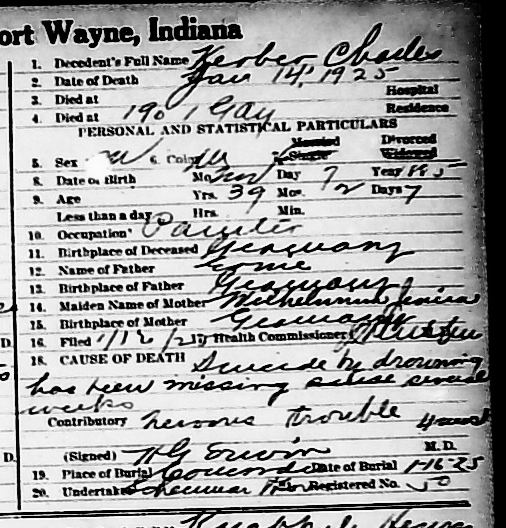 ort Wayne, Indiana
1. Decedent's Full Name Kerber Charles
2. Date of Death Jan 14, 1925
3. Died at Hospital
4. Died at 1901 Gay Residence
PERSONAL AND STATISTICAL PARTICULARS
Married Divorced
5. Sex M 6. Color W Single Widowed
8. Date of Birth Mo. Nov Day 7 Year
9. Age Yrs. 39 Mos. 2 Days 7
Less than a day Hrs. Min.
10. Occupation Painter
11. Birthplace of Deceased Germany
12. Name of Father
13. Birthplace of Father Germany
14. Maiden Name of Mother
15. Birthplace of Mother Germany
16. Filed 17 Health Commissioner
18. CAUSE OF DEATH Suicide by drowning
has been missing since several
weeks
Contributory nervous trouble
(Signed) H G Erwin M. D.
19. Place of Burial Concordia Date of Burial 1-16-25
20. Undertaker Registered No. 50